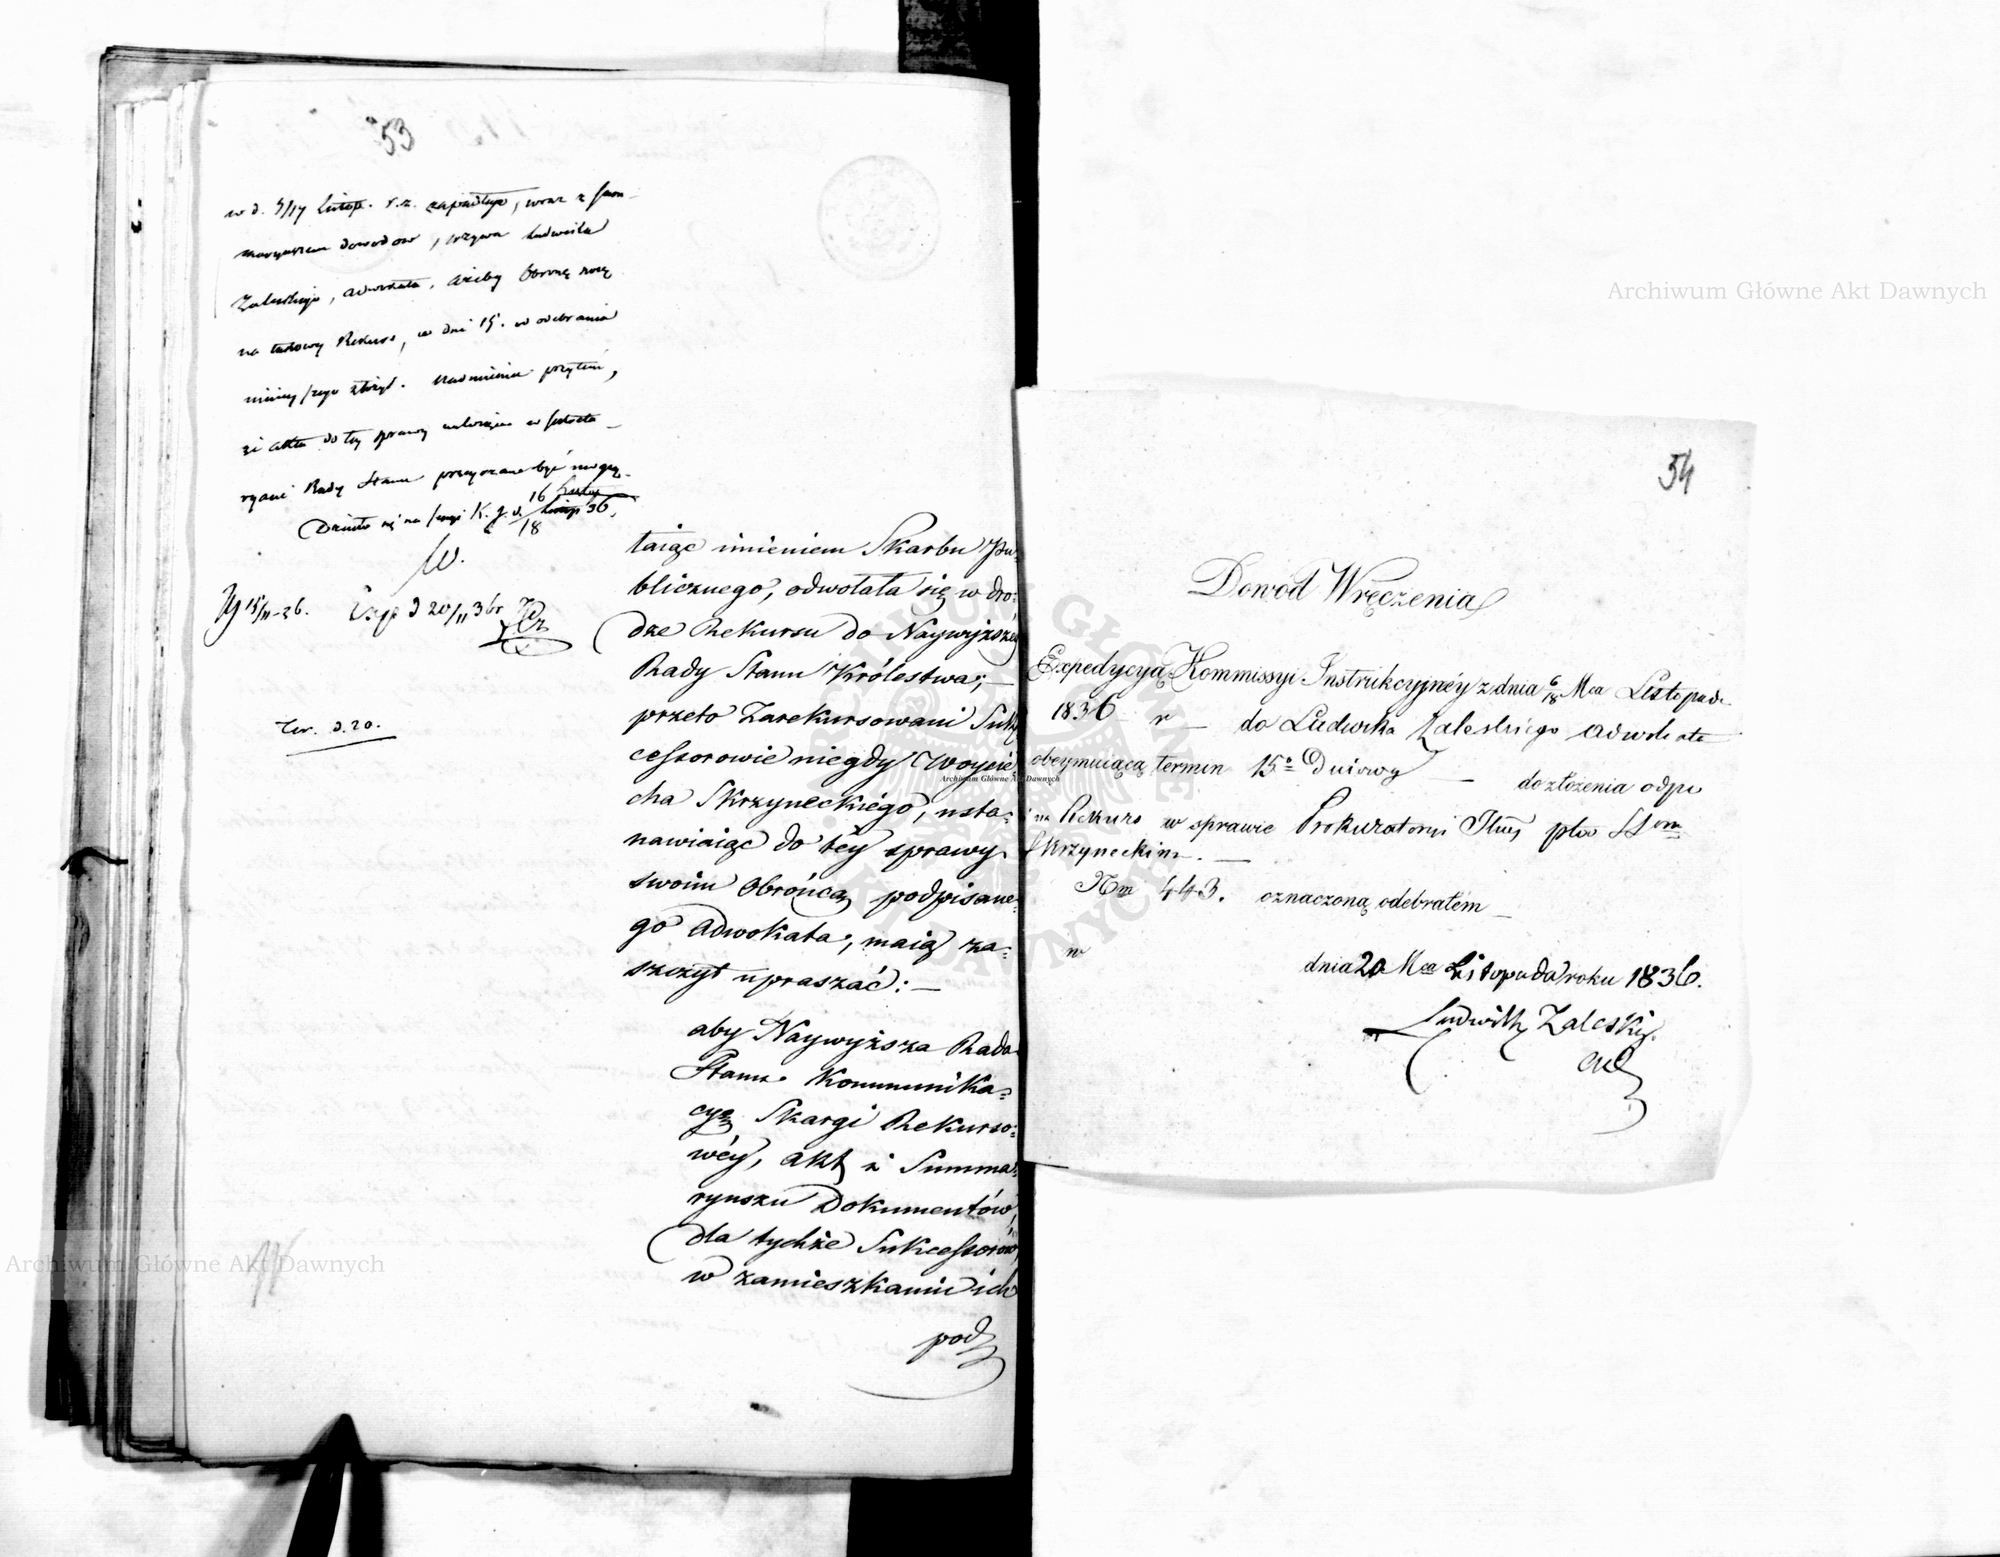 53
w d. 5/17 Listop. r. z. zapadłego, wraz z Sum-
maryuszem dowodow, wzywa Ludwika
Zaleskiego, adwokata, ażeby Obronę swą
na takowy Rekurs, w dni 15. od odebrania
ninieyszego złożył. Nadmienia przytem,
że akta do tey sprawy należące w Sekreta-
ryacie Rady Stanu przeyrzane być mogą.
Działo się na sessyi K. J. d. 16/18 Listop 36.
W.
15/11-36. Exp d 20/11 36r
Ter. d. 20.
taiąc imieniem Skarbu Pu-
blicznego, odwołała się w dro-
dze Rekursu do Naywyższey
Rady Stanu Królestwa; —
przeto Zarekursowani Suk-
cessorowie niegdy Woycie-
cha Skrzyneckiégo, usta-
nawiaiąc do téy sprawy
swoim Obrońcą podpisane-
go Adwokata, maią za-
szczyt upraszać: —
aby Naywyższa Rada
Stanu Kommunika-
cyą Skargi Rekurso-
wéy, akt i Summa-
ryuszu Dokumentów,
dla tychże Sukcessorów,
w zamieszkaniu ich
pod
54
Dowod Wręczenia
Expedycyą Kommissyi Instrukcyjnéy z dnia 6/18 Mca Listopada
1836 r — do Ludwika Zaleskiego Adwokata
obeymuiącą termin 15o Dniowy — do złożenia odpo
na Rekurs w sprawie Prokuratoryi Jlnéy plko SSom
Skrzyneckim. —
Nm 443. oznaczoną odebrałem —
w dnia 20 Mca Listopada roku 1836.
Ludwik Zaleski
Ad
Archiwum Główne Akt Dawnych
Archiwum Główne Akt Dawnych
Archiwum Główne Akt Dawnych
ARCHIWUM GŁÓWNE AKT DAWNYCH